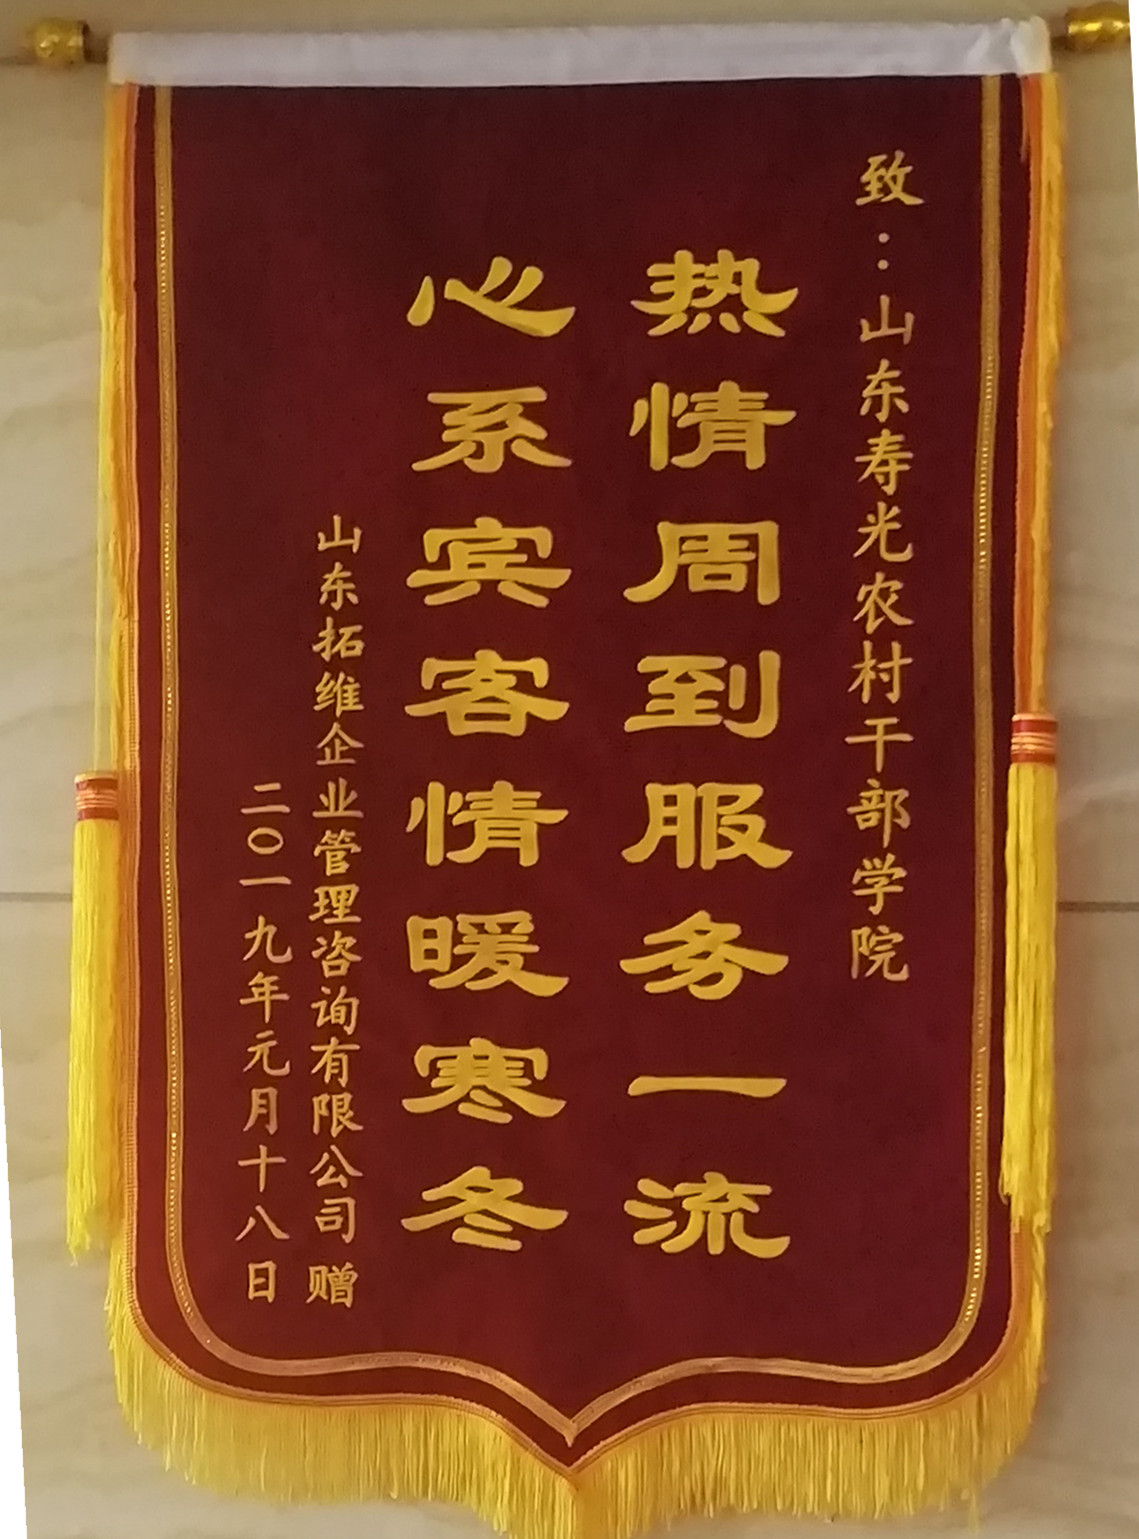 致：山东寿光农村干部学院
热情周到服务一流
心系宾客情暖寒冬
山东拓维企业管理咨询有限公司 赠
二〇一九年元月十八日